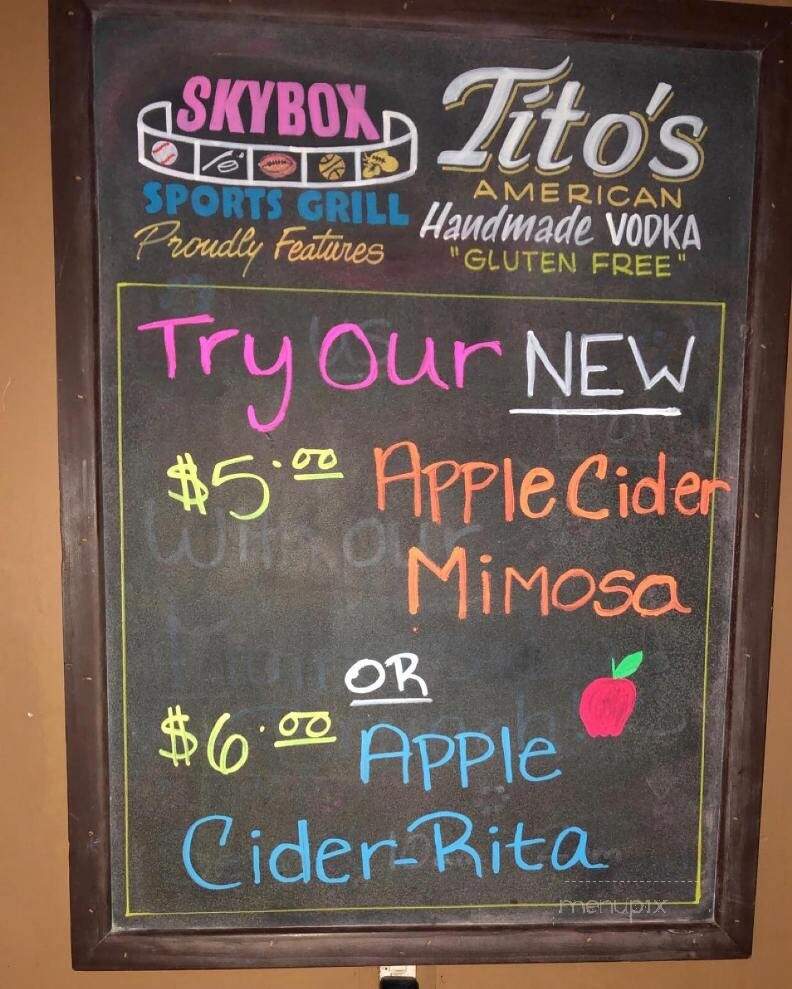 SKYBOX
SPORTS GRILL
Proudly Features
Tito's
AMERICAN
Handmade VODKA
"GLUTEN FREE"
Try Our NEW
$5.00 Apple Cider
Mimosa
OR
$6.00 Apple
Cider-Rita
menupix